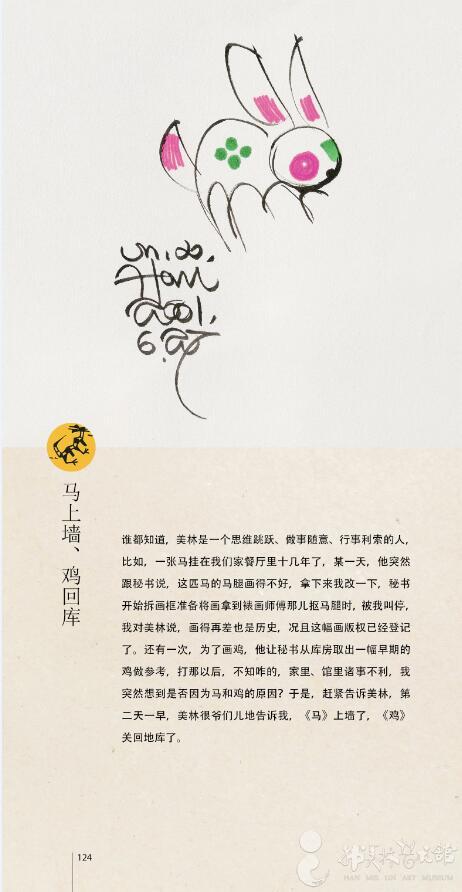 Han
马上墙、鸡回库
谁都知道，美林是一个思维跳跃、做事随意、行事利索的人，
比如，一张马挂在我们家餐厅里十几年了，某一天，他突然
跟秘书说，这匹马的马腿画得不好，拿下来我改一下，秘书
开始拆画框准备将画拿到裱画师傅那儿抠马腿时，被我叫停，
我对美林说，画得再差也是历史，况且这幅画版权已经登记
了。还有一次，为了画鸡，他让秘书从库房取出一幅早期的
鸡做参考，打那以后，不知咋的，家里、馆里诸事不利，我
突然想到是否因为马和鸡的原因？于是，赶紧告诉美林，第
二天一早，美林很爷们儿地告诉我，《马》上墙了，《鸡》
关回地库了。
124
韩美林艺术馆
HAN MEI LIN ART MUSEUM